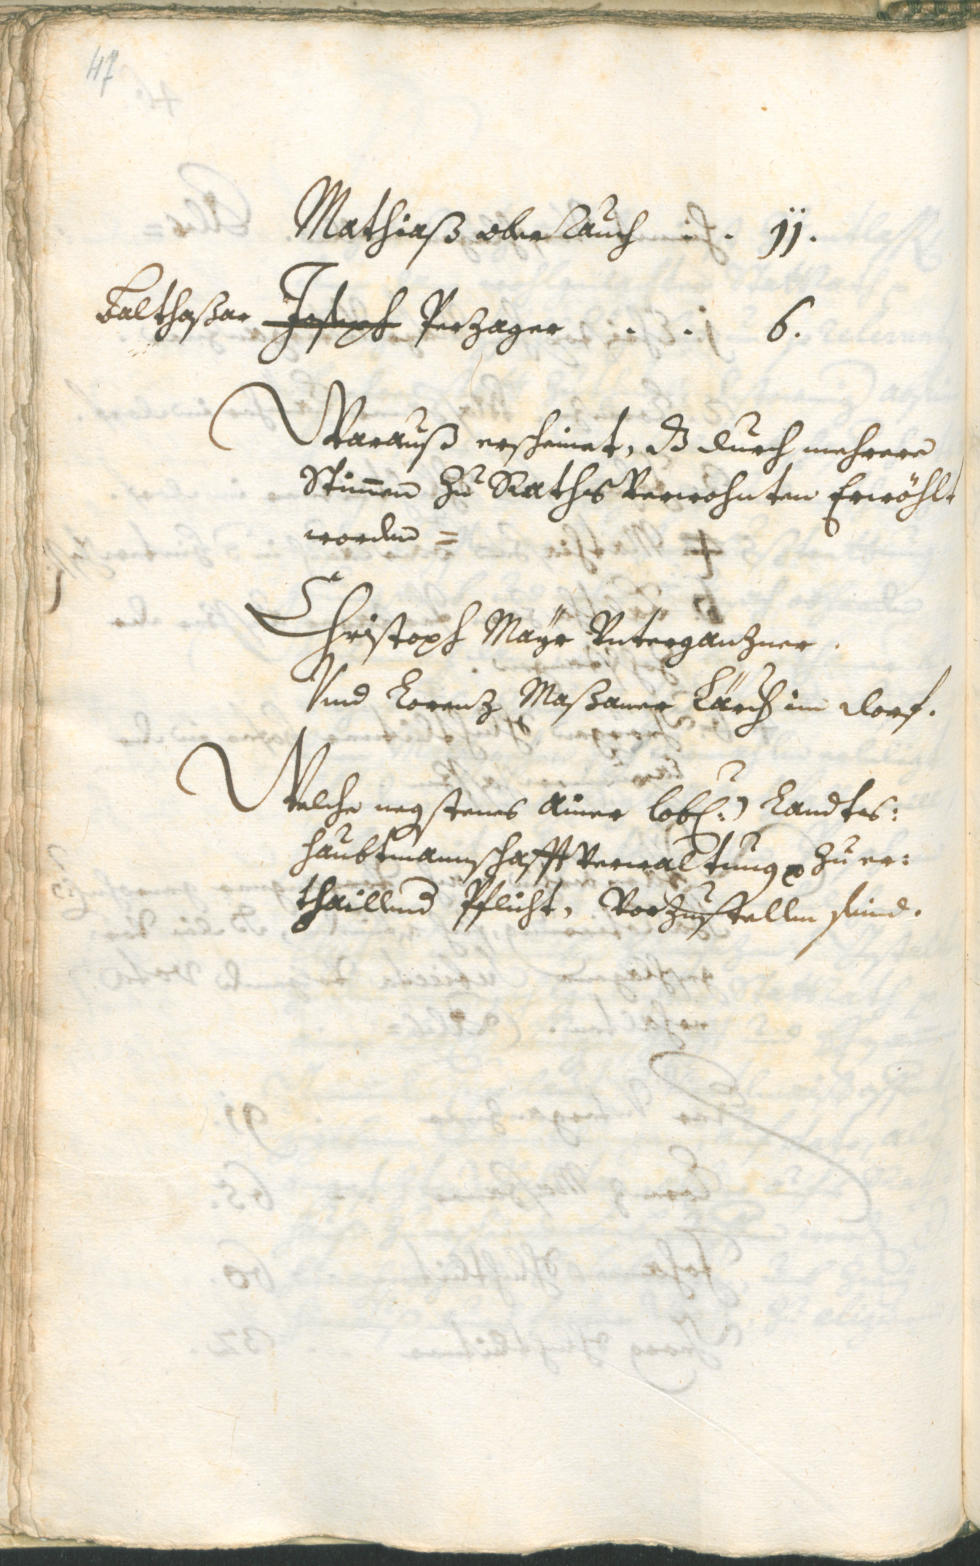 47
Mathiaß oberrauch . . 11.
Balthaßar Joseph Perzager . . 6.
Warauß erscheinet, dß durch mehrere
Stimmen zu Raths Verwohnten Erwöhlt
worden =
Christoph Mayr Unterganzner.
Und Lorenz Maßaner Lärch im dorf.
Welche negstens ainer lobl: Landts:
haubtmannschafft Verwaltung zu er:
thaillend Pflicht, Vorzustellen seind.